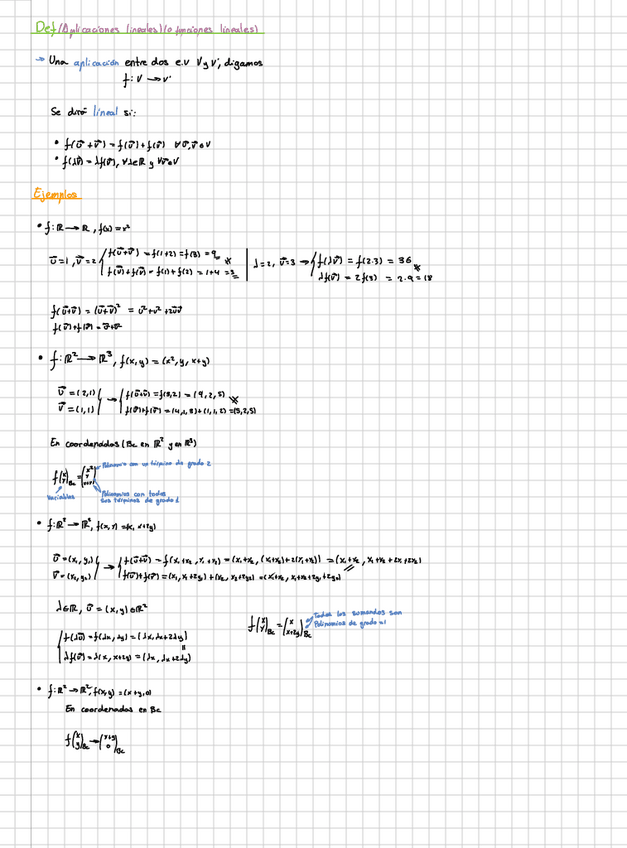 Def/Aplicaciones lineales)(o funciones lineales)
→ Una aplicación entre dos e.v V y V', digamos
f: V → V'
Se dirá lineal si:
• f(u⃗+v⃗) = f(u⃗)+f(v⃗) ∀u⃗,v⃗∈V
• f(λv⃗) = λf(v⃗), ∀λ∈ℝ y ∀v⃗∈V
Ejemplos
• f: ℝ → ℝ, f(x) = x²
u⃗=1, v⃗=2 { f(u⃗+v⃗) = f(1+2) = f(3) = 9
f(u⃗)+f(v⃗) = f(1)+f(2) = 1+4 = 5
λ=2, v⃗=3 → { f(λv⃗) = f(2·3) = 36
λf(v⃗) = 2f(3) = 2·9 = 18
f(u⃗+v⃗) = (u⃗+v⃗)² = u²+v²+2u⃗v⃗
• f: ℝ² → ℝ³, f(x,y) = (x², y, x+y)
u⃗ = (2,1)
v⃗ = (1,1) } → { f(u⃗+v⃗) = f(3,2) = (9,2,5)
f(u⃗)+f(v⃗) = (4,1,3)+(1,1,2) = (5,2,5)
En coordenadas (Bc en ℝ² y en ℝ³)
Polinomio con un término de grado 2
f(x y)Bc = (x² y x+y)
Variables
Polinomios con todos
sus términos de grado 1
• f: ℝ² → ℝ², f(x,y) = (x, x+2y)
u⃗ = (x₁,y₁)
v⃗ = (x₂,y₂) } → { f(u⃗+v⃗) = f(x₁+x₂, y₁+y₂) = (x₁+x₂, (x₁+x₂)+2(y₁+y₂)) = (x₁+x₂, x₁+x₂+2y₁+2y₂)
f(u⃗)+f(v⃗) = (x₁, x₁+2y₁)+(x₂, x₂+2y₂) = (x₁+x₂, x₁+x₂+2y₁+2y₂)
λ∈ℝ, u⃗ = (x,y)∈ℝ²
{ f(λu⃗) = f(λx, λy) = (λx, λx+2λy)
λf(u⃗) = λ(x, x+2y) = (λx, λx+2λy)
f(x y)Bc = (x x+2y)Bc
Todos los sumandos son
Polinomios de grado =1
• f: ℝ² → ℝ², f(x,y) = (x+y, 0)
En coordenadas en Bc
f(x y)Bc = (x+y 0)Bc